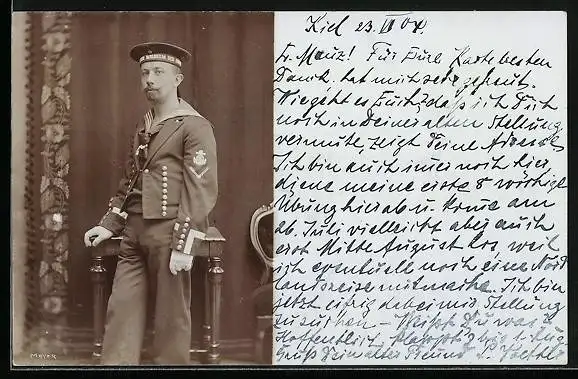 Kiel 23. VI 04.
Lr. Menz! Für Eure Karte besten
Dank. hat mich sehr gefreut.
Wie geht es Euch? daß ich Dich
noch in Deiner alten Stellung
vermute, zeigt Deine Adresse
Ich bin auch immer noch hier,
diene meine erste 8 wöchige
Übung hier ab u. komme am
26. Juli vielleicht aber auch
erst Mitte August los, weil
ich eventuell noch eine Nord
landsreise mitmache. Ich bin
jetzt eifrig dabei mir Stellung
zu suchen — Weißt Du was?
Hoffentlich
Gruß Dein alter Freund
MEYER